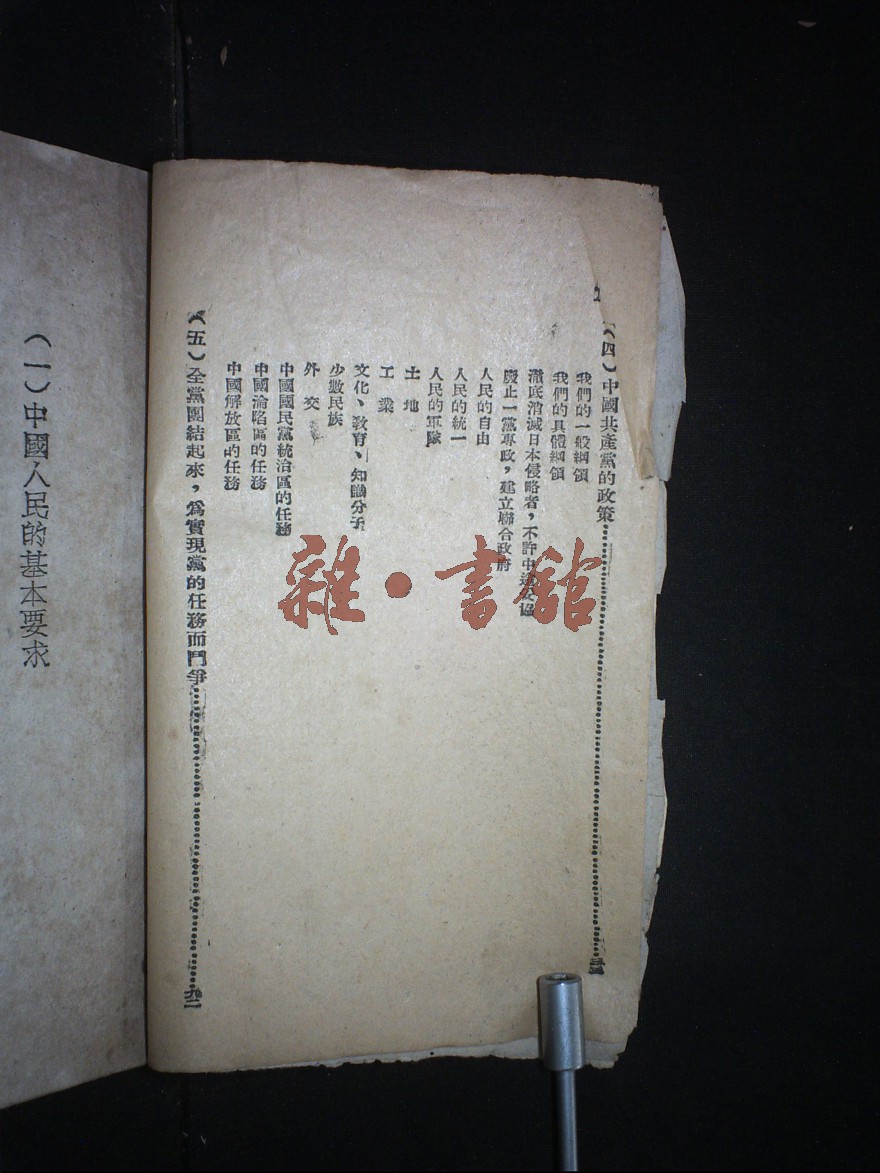 (四)中國共產黨的政策
我們的一般綱領
我們的具體綱領
澈底消滅日本侵略者,不許中途妥協
廢止一黨專政,建立聯合政府
人民的自由
人民的統一
人民的軍隊
土地
工業
文化、教育、知識分子
少數民族
外交
中國國民黨統治區的任務
中國淪陷區的任務
中國解放區的任務
(五)全黨團結起來,為實現黨的任務而鬥爭 九二
(一)中國人民的基本要求
雜·書館